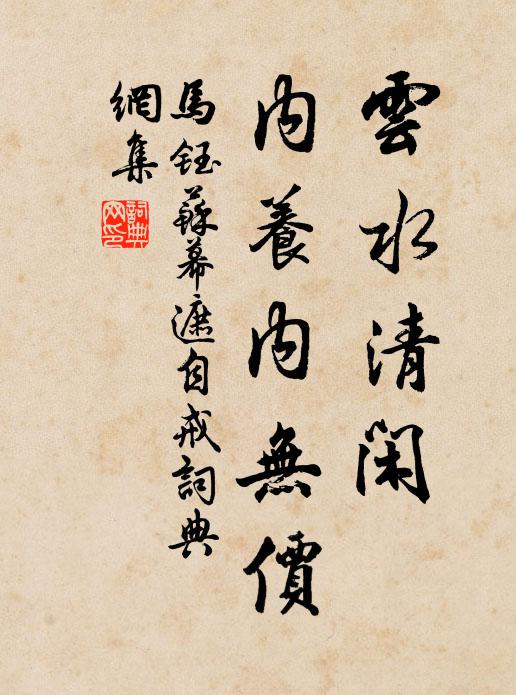 雲水清閑
内養内無價
馬鈺蘇幕遮自戒詞典
網集
詞典網印